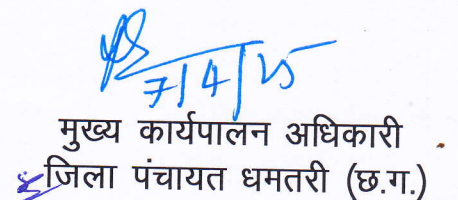 7/4/25
मुख्य कार्यपालन अधिकारी
जिला पंचायत धमतरी (छ.ग.)